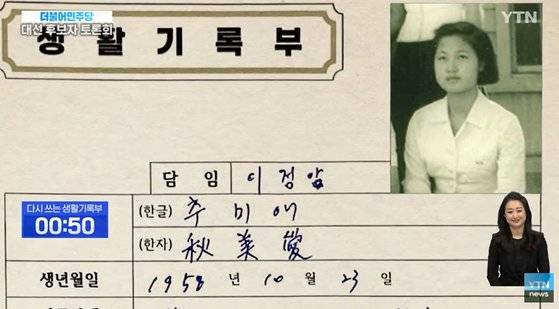 더불어민주당
대선 후보자 토론회
YTN
생활기록부
담 임 이정암
다시 쓰는 생활기록부
00:50
(한글) 추미애
(한자) 秋美愛
생년월일 1958 년 10 월 23 일
YTN
news